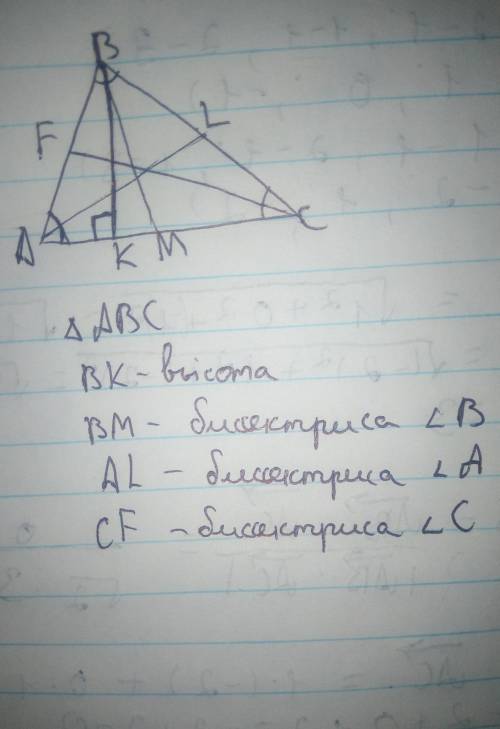 B
F
L
A
K
M
C
△ ABC
BK - высота
BM - биссектриса ∠B
AL - биссектриса ∠A
CF - биссектриса ∠C